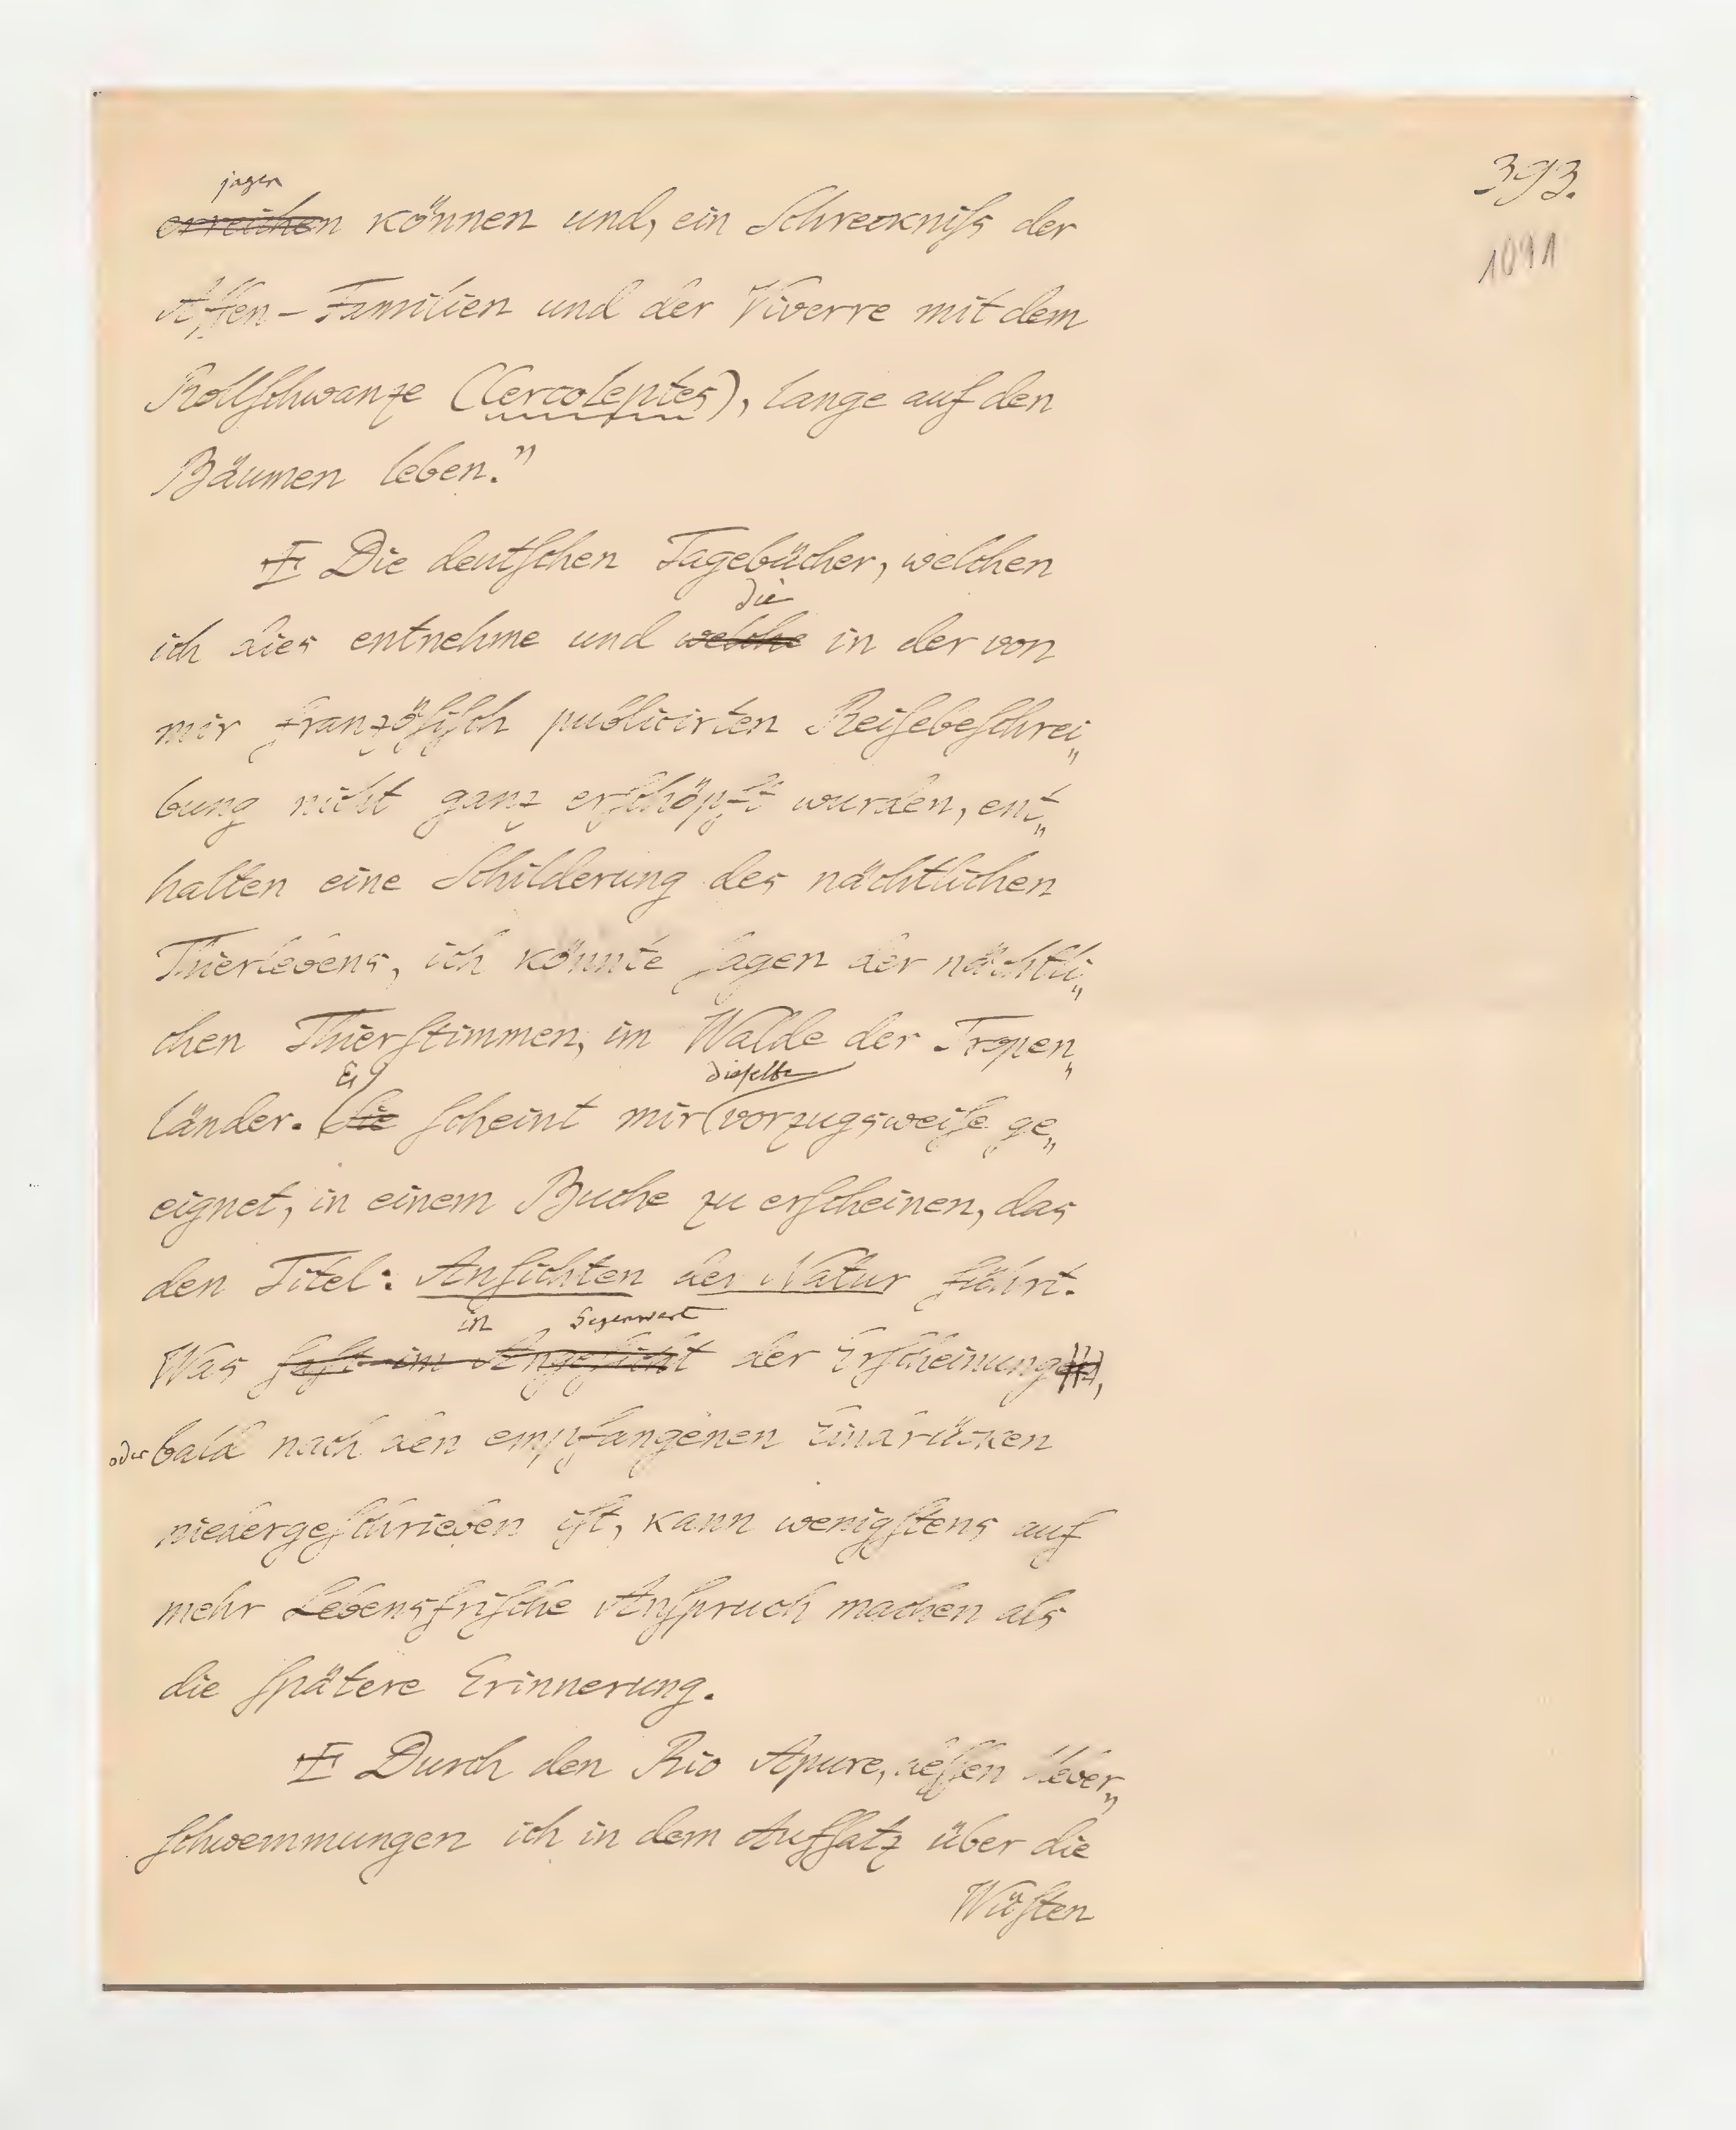 393.
1091
jagen
erreichen können und, ein Schreckniſs der
Affen-Familien und der Viverre mit dem
Rollſchwanze (Cercoleptes), lange auf den
Bäumen leben.”
Die deutſchen Tagebücher, welchen
die
ich dies entnehme und welche in der von
mir franzöſiſch publicirten Reiſebeſchrei„
bung nicht ganz erſchöpft wurden, ent„
halten eine Schilderung des nächtlichen
Thierlebens, ich könnte ſagen der nächtli„
chen Thierſtimmen, im Walde der Tropen„
Es dieſelbe
länder. Sie ſcheint mir vorzugsweiſe ge„
eignet, in einem Buche zu erſcheinen, das
den Titel: Anſichten der Natur führt.
in Gegenwart
Was faſt im Angeſicht der Erſcheinungen,
oder bald nach den empfangenen Eindrücken
niedergeſchrieben iſt, kann wenigſtens auf
mehr Lebensfriſche Anſpruch machen als
die ſpätere Erinnerung.
Durch den Rio Apure, deſſen Ueber„
ſchwemmungen ich in dem Aufſatz über die
Wüſten